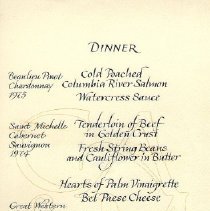 DINNER
Beaulieu Pinot
Chardonnay
Cold Poached
Columbia River Salmon
Watercress Sauce
Saint Michelle
Cabernet
Sauvignon
1974
Tenderloin of Beef
in Golden Crust
Fresh String Beans
and Cauliflower in Butter
Hearts of Palm Vinaigrette
Bel Paese Cheese
Great Western